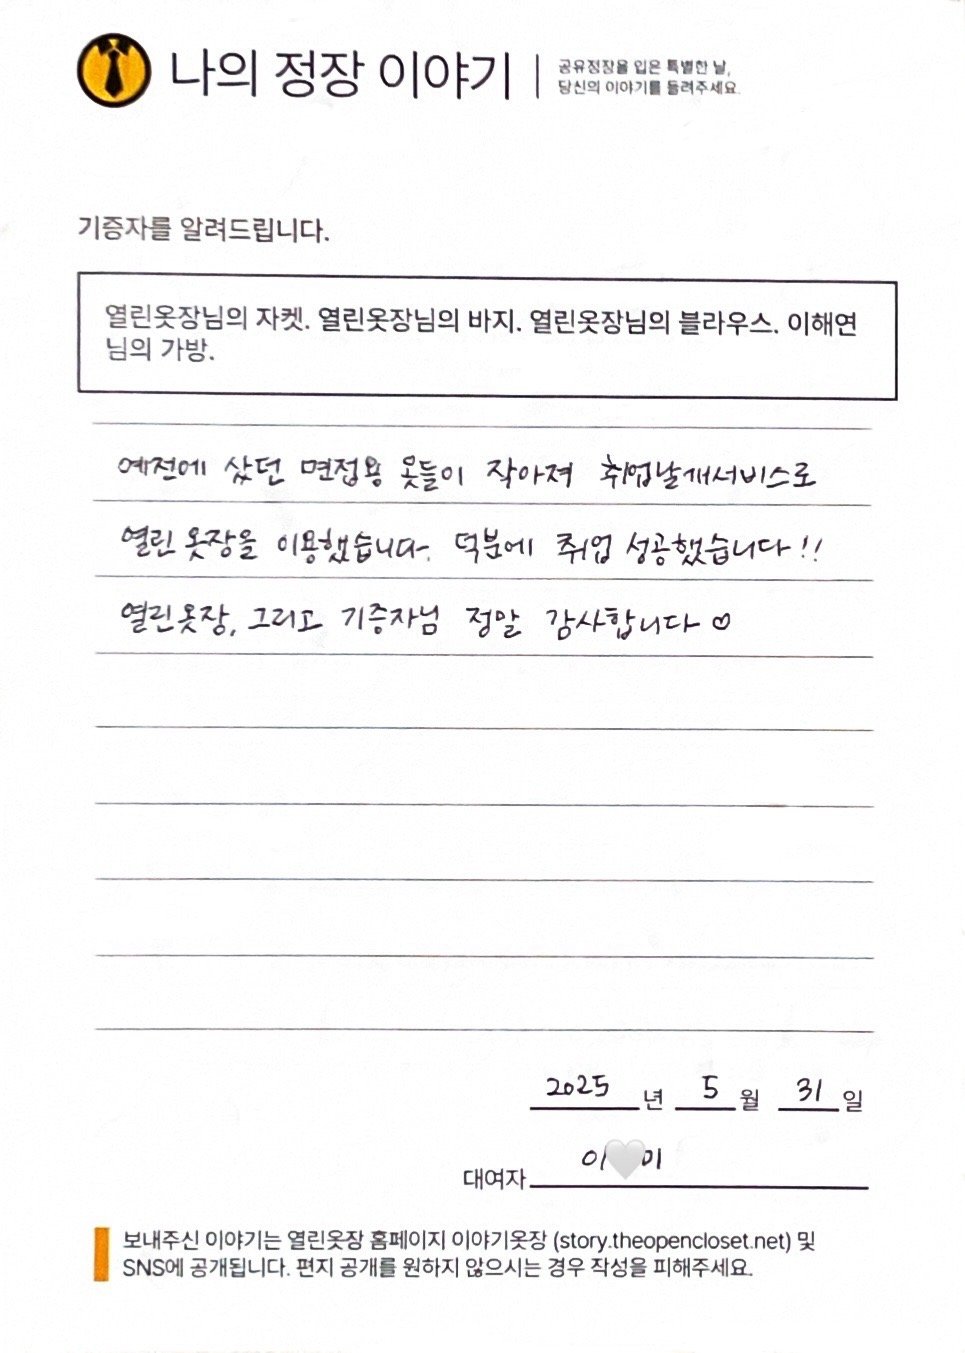 나의 정장 이야기
공유정장을 입은 특별한 날,
당신의 이야기를 들려주세요.
기증자를 알려드립니다.
열린옷장님의 자켓. 열린옷장님의 바지. 열린옷장님의 블라우스. 이해연
님의 가방.
예전에 샀던 면접용 옷들이 작아져 취업날개서비스로
열린 옷장을 이용했습니다. 덕분에 취업 성공했습니다!!
열린옷장, 그리고 기증자님 정말 감사합니다♡
2025 년 5 월 31 일
대여자 이🤍미
보내주신 이야기는 열린옷장 홈페이지 이야기옷장 (story.theopencloset.net) 및
SNS에 공개됩니다. 편지 공개를 원하지 않으시는 경우 작성을 피해주세요.